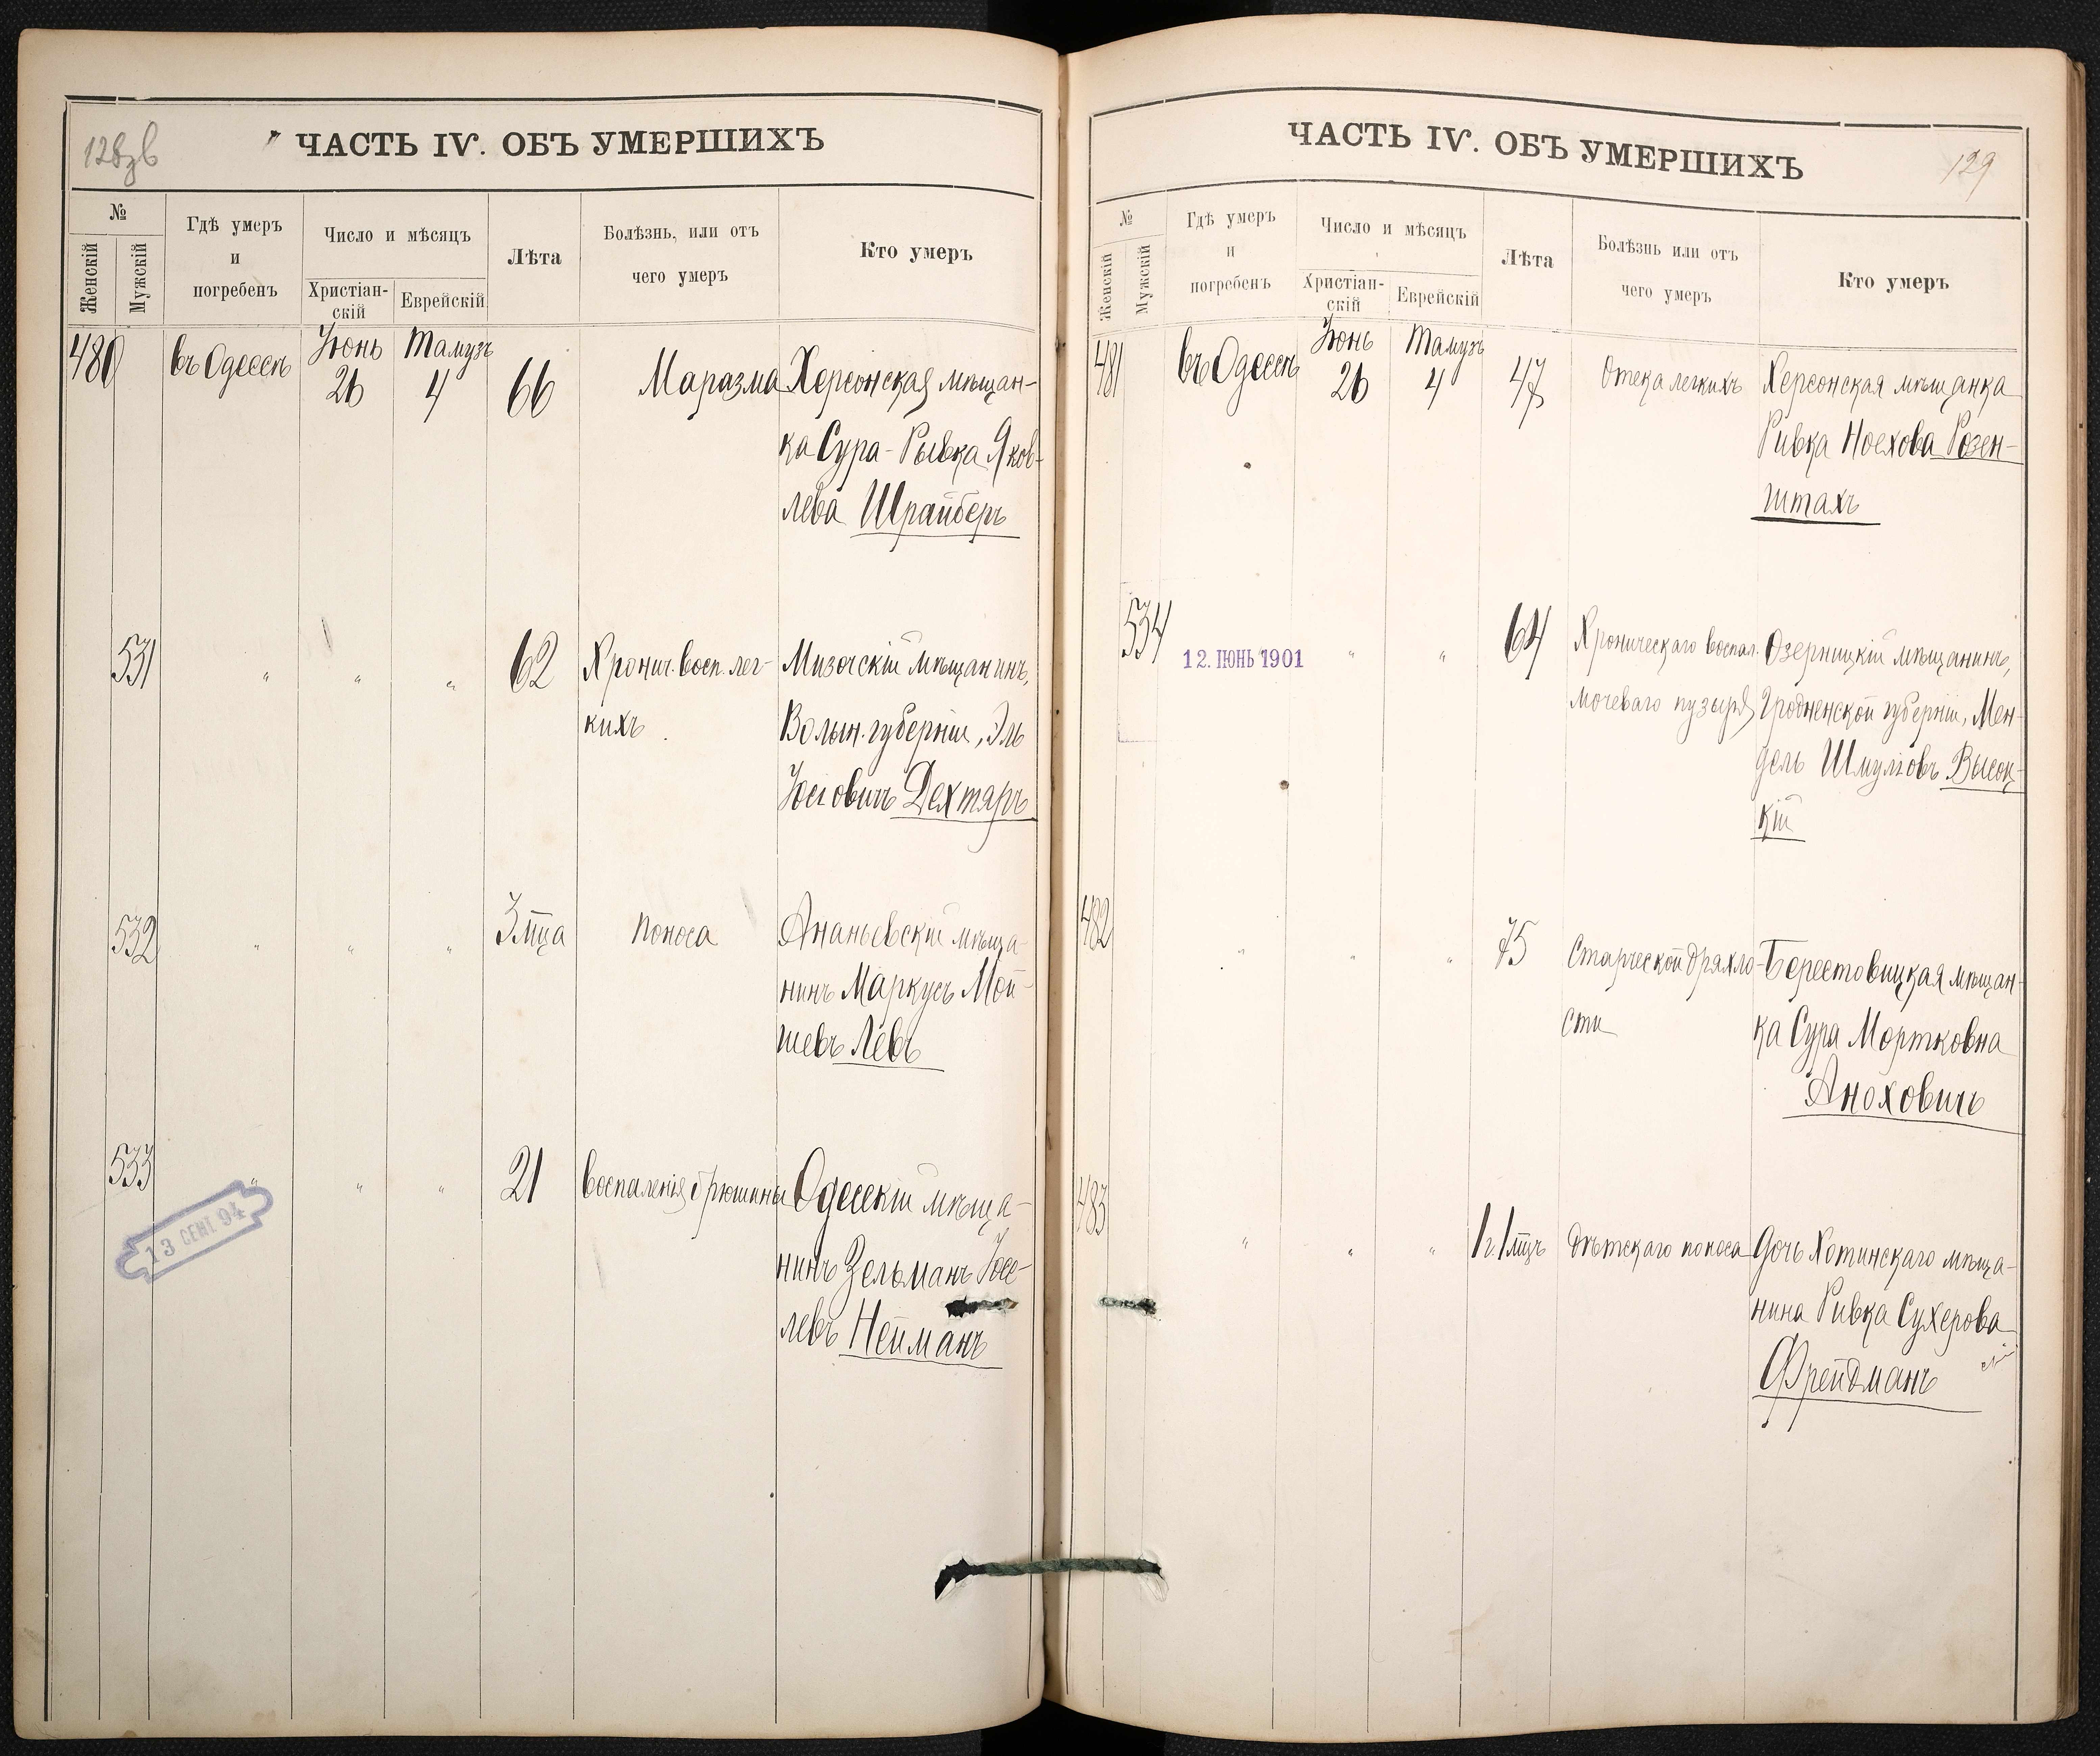 128 об
ЧАСТЬ IV. ОБЪ УМЕРШИХЪ
№
Женскій
Мужскій
Гдѣ умеръ
и
погребенъ
Число и мѣсяцъ
Христіан-
скій
Еврейскій
Лѣта
Болѣзнь, или отъ
чего умеръ
Кто умеръ
480 въ Одессѣ Іюнь 26 Тамузъ 4 66 Маразма Херсонская мѣщан-
ка Сура-Рывка Яков-
лева Шрайберъ
531 " " " 62 Хронич. восп. лег- Мизочскій мѣщанинъ,
кихъ Волын. губерніи, Эль
Іосіовичъ Дехтяръ
532 " " " 3 мца поноса Ананьевскій мѣща-
нинъ Маркусъ Мой-
шевъ Левъ
533 " " " 21 воспаленія брюшины Одесскій мѣща-
нинъ Зельманъ Іосе-
левъ Нейманъ
13 СЕНТ 94
ЧАСТЬ IV. ОБЪ УМЕРШИХЪ
129
№
Женскій
Мужскій
Гдѣ умеръ
и
погребенъ
Число и мѣсяцъ
Христіан-
скій
Еврейскій
Лѣта
Болѣзнь или отъ
чего умеръ
Кто умеръ
481 въ Одессѣ Іюнь 26 Тамузъ 4 47 Отека легкихъ Херсонская мѣщанка
Ривка Ноехова Розен-
штахъ
534 12. ІЮНЬ 1901 " " 64 Хроническаго воспал. Озерницкій мѣщанинъ,
мочеваго пузыря Гродненской губерніи, Мен-
дель Шмуліовъ Высоц-
кій
482 " " " 75 Старческой дряхло- Берестовицкая мѣщан-
сти ка Сура Мортковна
Аноховичъ
483 " " " 1 г. 1 мцъ дѣтскаго поноса Дочь Хотинскаго мѣща-
нина Ривка Сухерова
Фрейдманъ